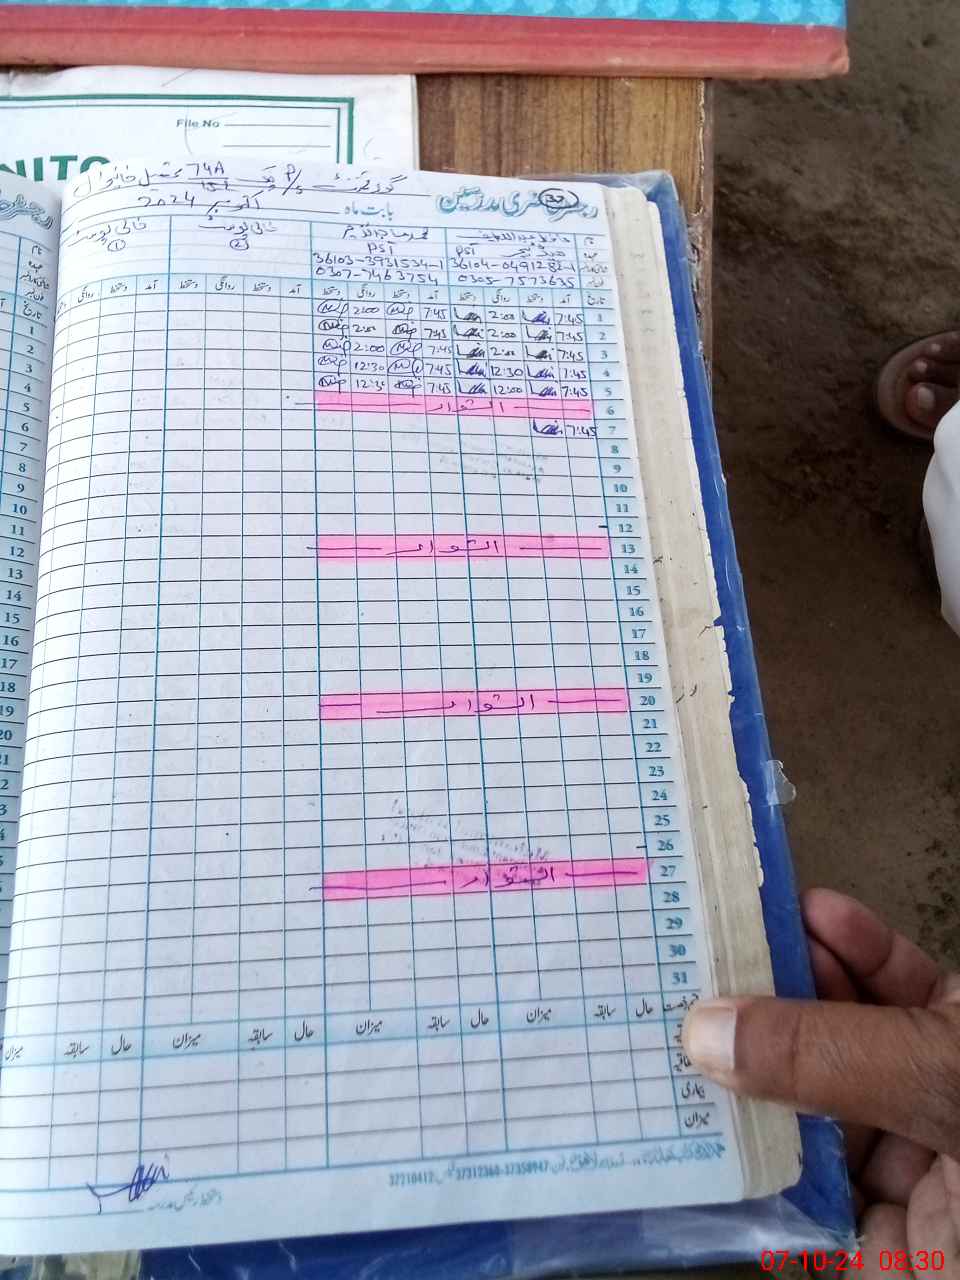 File No
رجسٹر حاضری مدرسین
37
گورنمنٹ P/S چک 74A/15L تحصیل خانیوال
بابت ماہ اکتوبر 2024
نام حافظ عبداللطیف محمد ساجد ندیم خالی پوسٹ (2) خالی پوسٹ (1)
عہدہ ہیڈ ٹیچر PST PST
36104-0491281-1 36103-3931534-1
0305-7573635 0307-7463754
تاریخ آمد دستخط روانگی دستخط آمد دستخط روانگی دستخط آمد دستخط روانگی دستخط آمد دستخط روانگی
1 7:45 2:00 7:45 2:00
2 7:45 2:00 7:45 2:00
3 7:45 2:00 7:45 2:00
4 7:45 12:30 7:45 12:30
5 7:45 12:00 7:45 12:30
6 اتوار
7 7:45
8
9
10
11
12
13 اتوار
14
15
16
17
18
19
20 اتوار
21
22
23
24
25
26
27 اتوار
28
29
30
31
حال سابقہ میزان حال سابقہ میزان حال سابقہ میزان حال سابقہ میزان
اتفاقیہ
بیماری
میزان
37312360-37350947 37210412
دستخط رئیس مدرسہ
07-10-24 08:30